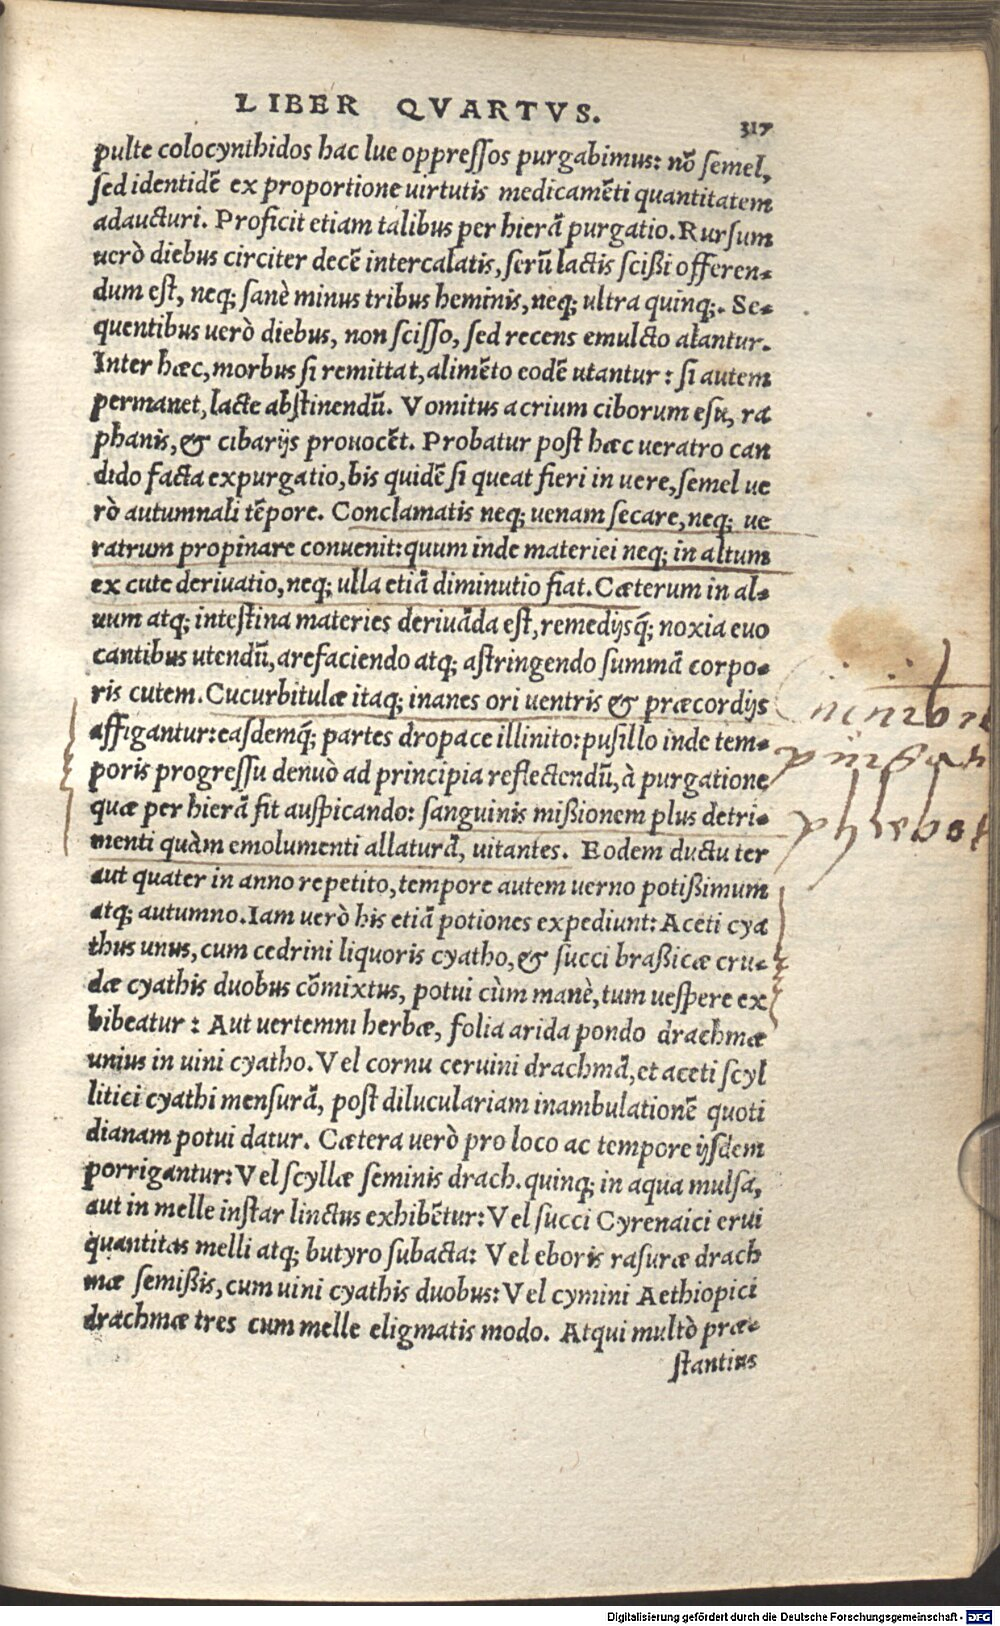 LIBER QVARTVS.
317
pulte colocynthidos hac lue oppressos purgabimus: nõ semel,
sed identidẽ ex proportione uirtutis medicamẽti quantitatem
adaucturi. Proficit etiam talibus per hierã purgatio. Rursum
uerò diebus circiter decẽ intercalatis, serũ lactis scißi offeren-
dum est, neq; sanè minus tribus heminis, neq; ultra quinq;. Se-
quentibus uerò diebus, non scisso, sed recens emulcto alantur.
Inter hæc, morbus si remittat, alimẽto eodẽ utantur: si autem
permanet, lacte abstinendũ. Vomitus acrium ciborum esu, ra
phanis, & cibarijs prouocẽt. Probatur post hæc ueratro can
dido facta expurgatio, bis quidẽ si queat fieri in uere, semel ue
rò autumnali tẽpore. Conclamatis neq; uenam secare, neq; ue
ratrum propinare conuenit: quum inde materiei neq; in altum
ex cute deriuatio, neq; ulla etiã diminutio fiat. Cæterum in al-
uum atq; intestina materies deriuãda est, remedijsq́; noxia euo
cantibus utendũ, arefaciendo atq; astringendo summã corpo-
ris cutem. Cucurbitulæ itaq; inanes ori uentris & præcordijs
affigantur: easdemq́; partes dropace illinito: pusillo inde tem-
poris progressu denuò ad principia reflectendũ, à purgatione
quæ per hierã fit auspicando: sanguinis mißionem plus detri-
menti quàm emolumenti allaturã, uitantes. Eodem ductu ter
aut quater in anno repetito, tempore autem uerno potißimum
atq; autumno. Iam uerò his etiã potiones expediunt: Aceti cya
thus unus, cum cedrini liquoris cyatho, & succi braßicæ cru-
dæ cyathis duobus cõmixtus, potui cùm manè, tum uespere ex
bibeatur: Aut uertemni herbæ, folia arida pondo drachmæ
unius in uini cyatho. Vel cornu ceruini drachmã, et aceti scyl
litici cyathi mensurã, post diluculariam inambulationẽ quoti
dianam potui datur. Cætera uerò pro loco ac tempore ijsdem
porrigantur: Vel scyllæ seminis drach. quinq; in aqua mulsa,
aut in melle instar linctus exhibẽtur: Vel succi Cyrenaici erui
quantitas melli atq; butyro subacta: Vel eboris rasuræ drach
mæ semißis, cum uini cyathis duobus: Vel cymini Aethiopici
drachmæ tres cum melle eligmatis modo. Atqui multò præ-
stantius
Digitalisierung gefördert durch die Deutsche Forschungsgemeinschaft - DFG